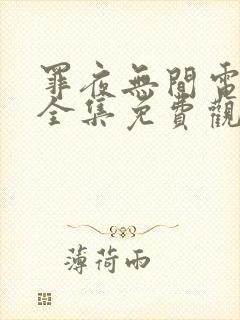 罪夜無間電
全集免費觀
薄荷雨